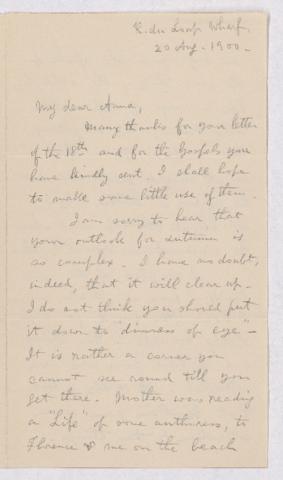 Wharf,
20 Aug. 1900.
My dear Anna,
Many thanks for your letter
of the 18th and for the Gospels you
have kindly sent. I shall hope
to make some little use of them.
I am sorry to hear that
your outlook for autumn is
so complex. I have no doubt,
indeed, that it will clear up.
I do not think you should put
it down to "dimness of eye" –
It is rather a corner you
cannot see round till you
get there. Mother was reading
a "Life" of some authoress, to
Florence & me on the beach